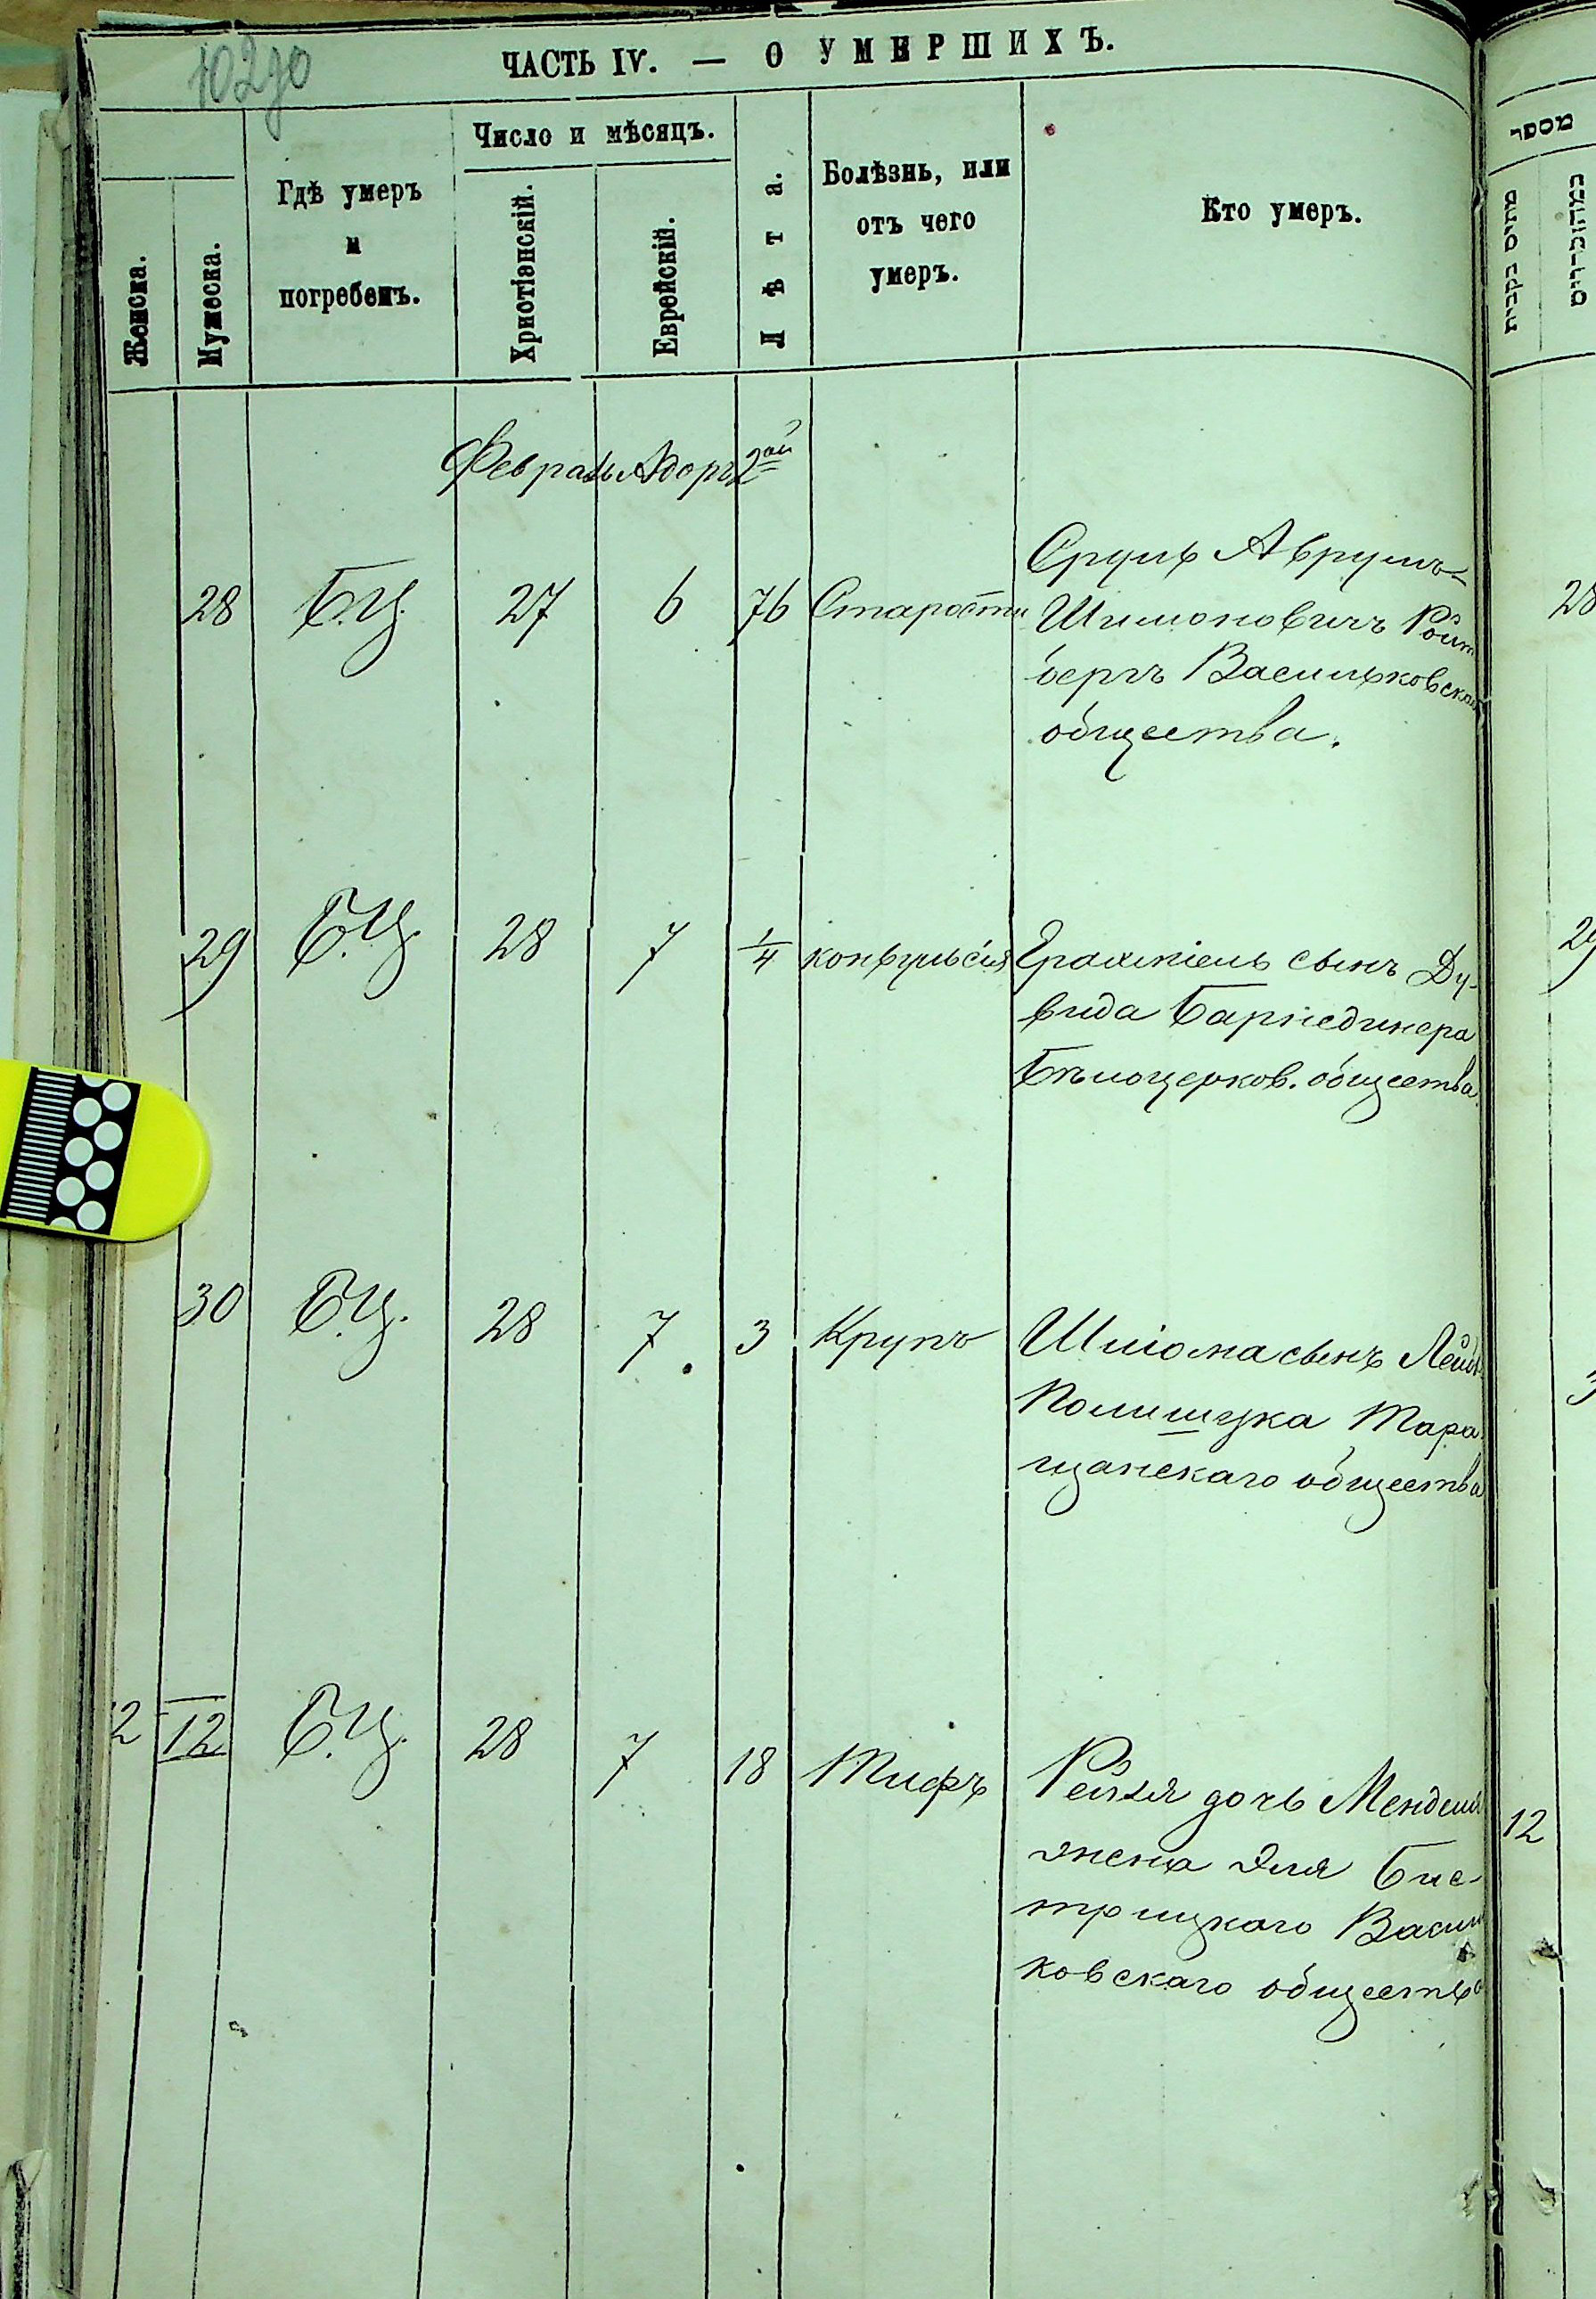 102 до
ЧАСТЬ IV. — О УМЕРШИХЪ.
Женска.
Мужеска.
Гдѣ умеръ
и
погребенъ.
Число и мѣсяцъ.
Христіанскій.
Еврейскій.
Лѣта.
Болѣзнь, или
отъ чего
умеръ.
Кто умеръ.
מספר
Февраль Адоръ 2ой
28 Б.Ц. 27 6 76 Старости Сруль Аврумъ-
Шимоновичъ Ройт
бергъ Васильковскаго
общества.
28
29 Б.Ц. 28 7 1/4 конвульсія сынъ Ду-
вида
Бѣлоцерков. общества.
29
30 Б.Ц. 28 7. 3 Крупъ Шліома сынъ Лейбы
Полищука Тара
щанскаго общества
12 12 Б.Ц. 28 7 18 Тифъ Рейзя дочь Менделя
жена Эля Бис-
трицкаго Василь
ковскаго общества
12